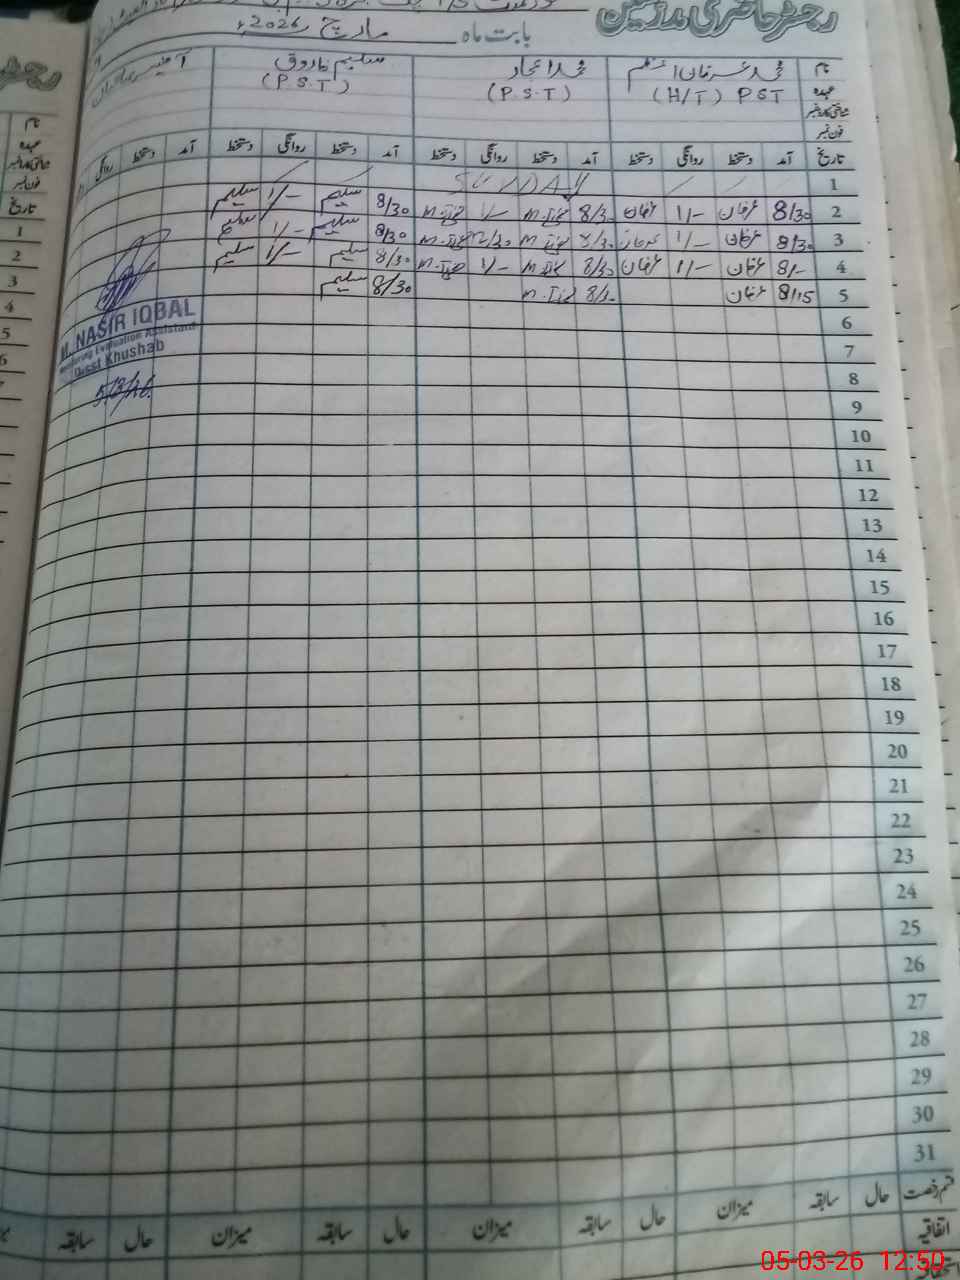 رجسٹر حاضری مدرسین
بابت ماہ مارچ 2026ء
نام محمد عرفان اعظم محمد اعجاز سلیم فاروق
عہدہ PST (H/T) (P.S.T) (P.S.T)
شناختی کارڈ نمبر
فون نمبر
تاریخ آمد دستخط روانگی دستخط آمد دستخط روانگی دستخط آمد دستخط روانگی دستخط آمد دستخط روانگی
1 SUNDAY
2 8/30 عرفان 1/- عرفان 8/30 1/- 8/30 سلیم 1/- سلیم
3 8/30 عرفان 1/- عرفان 8/30 12/30 8/30 سلیم 1/- سلیم
4 8/- عرفان 1/- عرفان 8/30 1/- 8/30 سلیم 1/- سلیم
5 8/15 عرفان 8/30 8/30 سلیم
M. NASIR IQBAL
Monitoring Evaluation Assistant
Distt Khushab
5/3/26
6
7
8
9
10
11
12
13
14
15
16
17
18
19
20
21
22
23
24
25
26
27
28
29
30
31
قسم رخصت حال سابقہ میزان حال سابقہ میزان حال سابقہ میزان حال سابقہ
اتفاقیہ
05-03-26 12:50